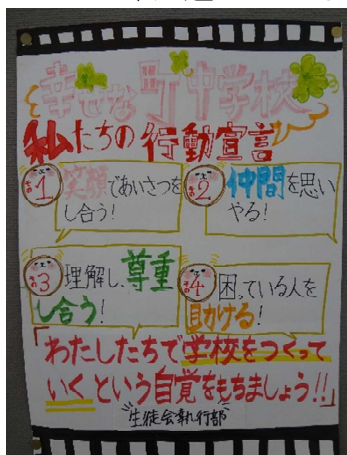 幸せな町中学校
私たちの行動宣言
その1 笑顔であいさつを
し合う!
その2 仲間を思い
やる!
その3 理解し、尊重
し合う!
その4 困っている人を
助ける!
「わたしたちで学校をつくって
いくという自覚をもちましょう!!」
生徒会執行部